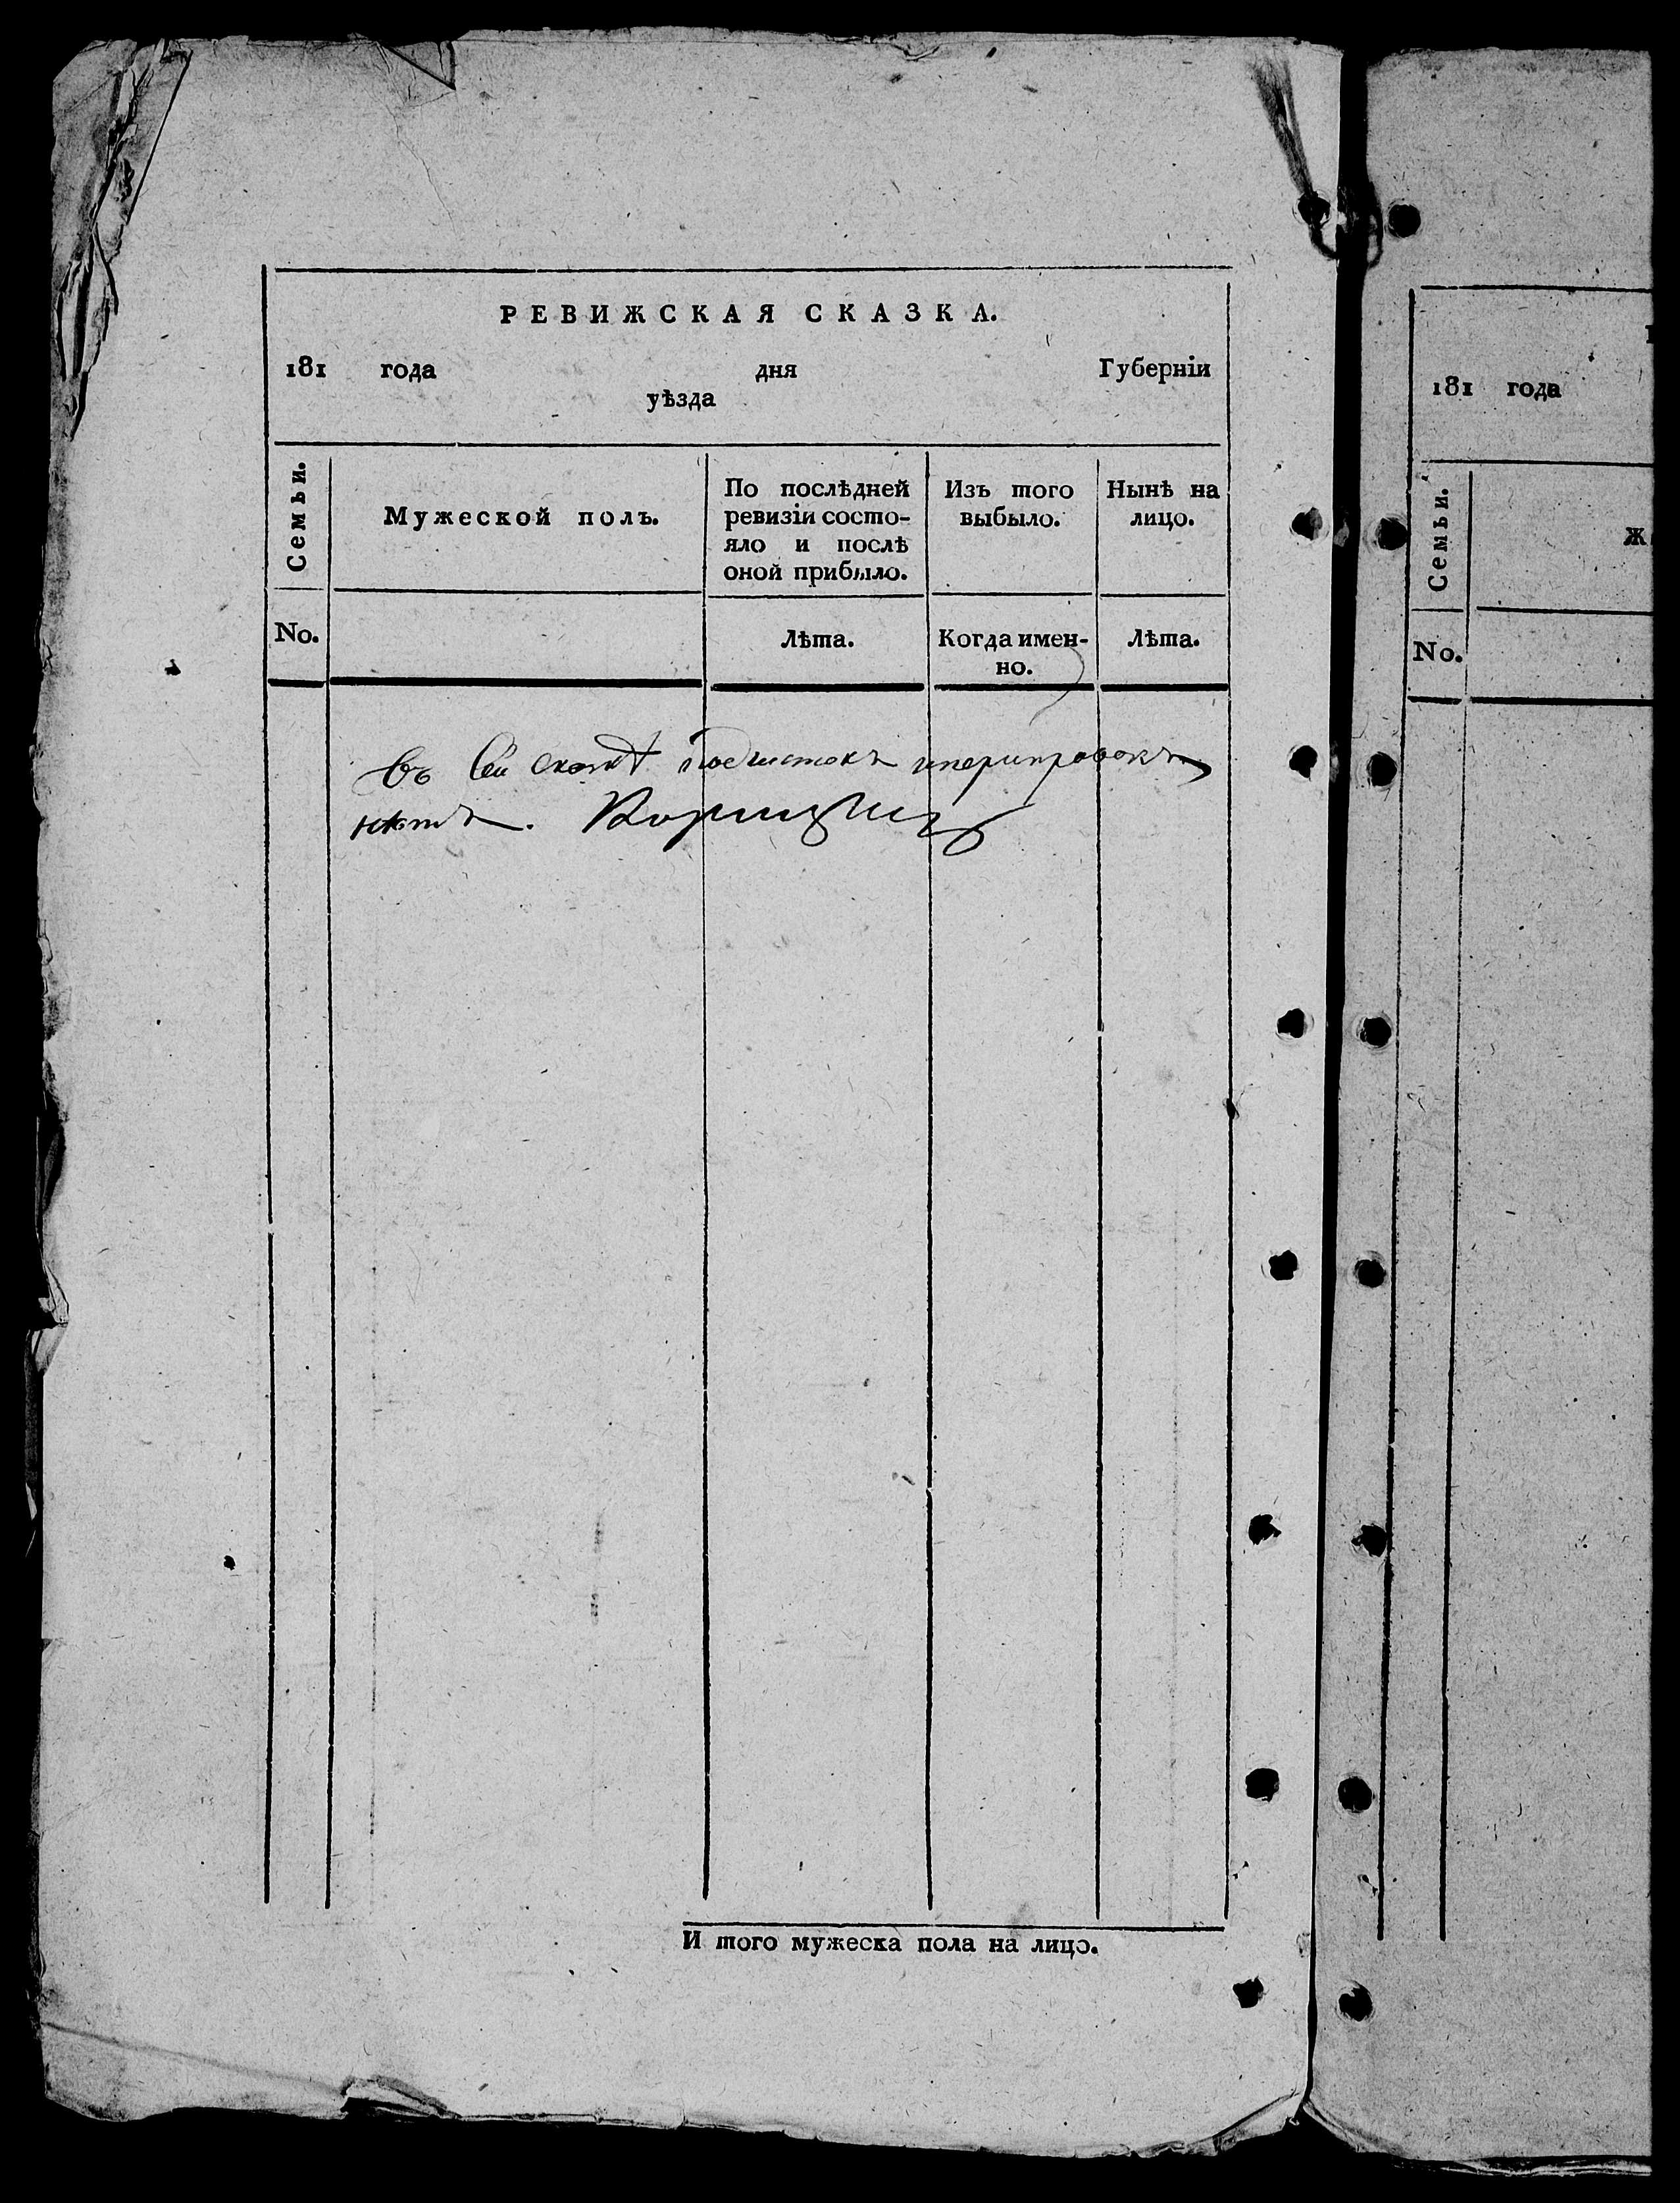 РЕВИЖСКАЯ СКАЗКА.
181 года дня Губерніи
уѣзда
Семьи.
Мужеской полъ.
По послѣдней
ревизіи состо-
яло и послѣ
оной прибыло.
Изъ того
выбыло.
Нынѣ на
лицо.
No.
Лѣта.
Когда имен-
но.
Лѣта.
Въ сей сказкѣ подчистокъ ипериправокъ
нѣтъ.
И того мужеска пола на лицо.
181 года
Семьи.
Ж
No.